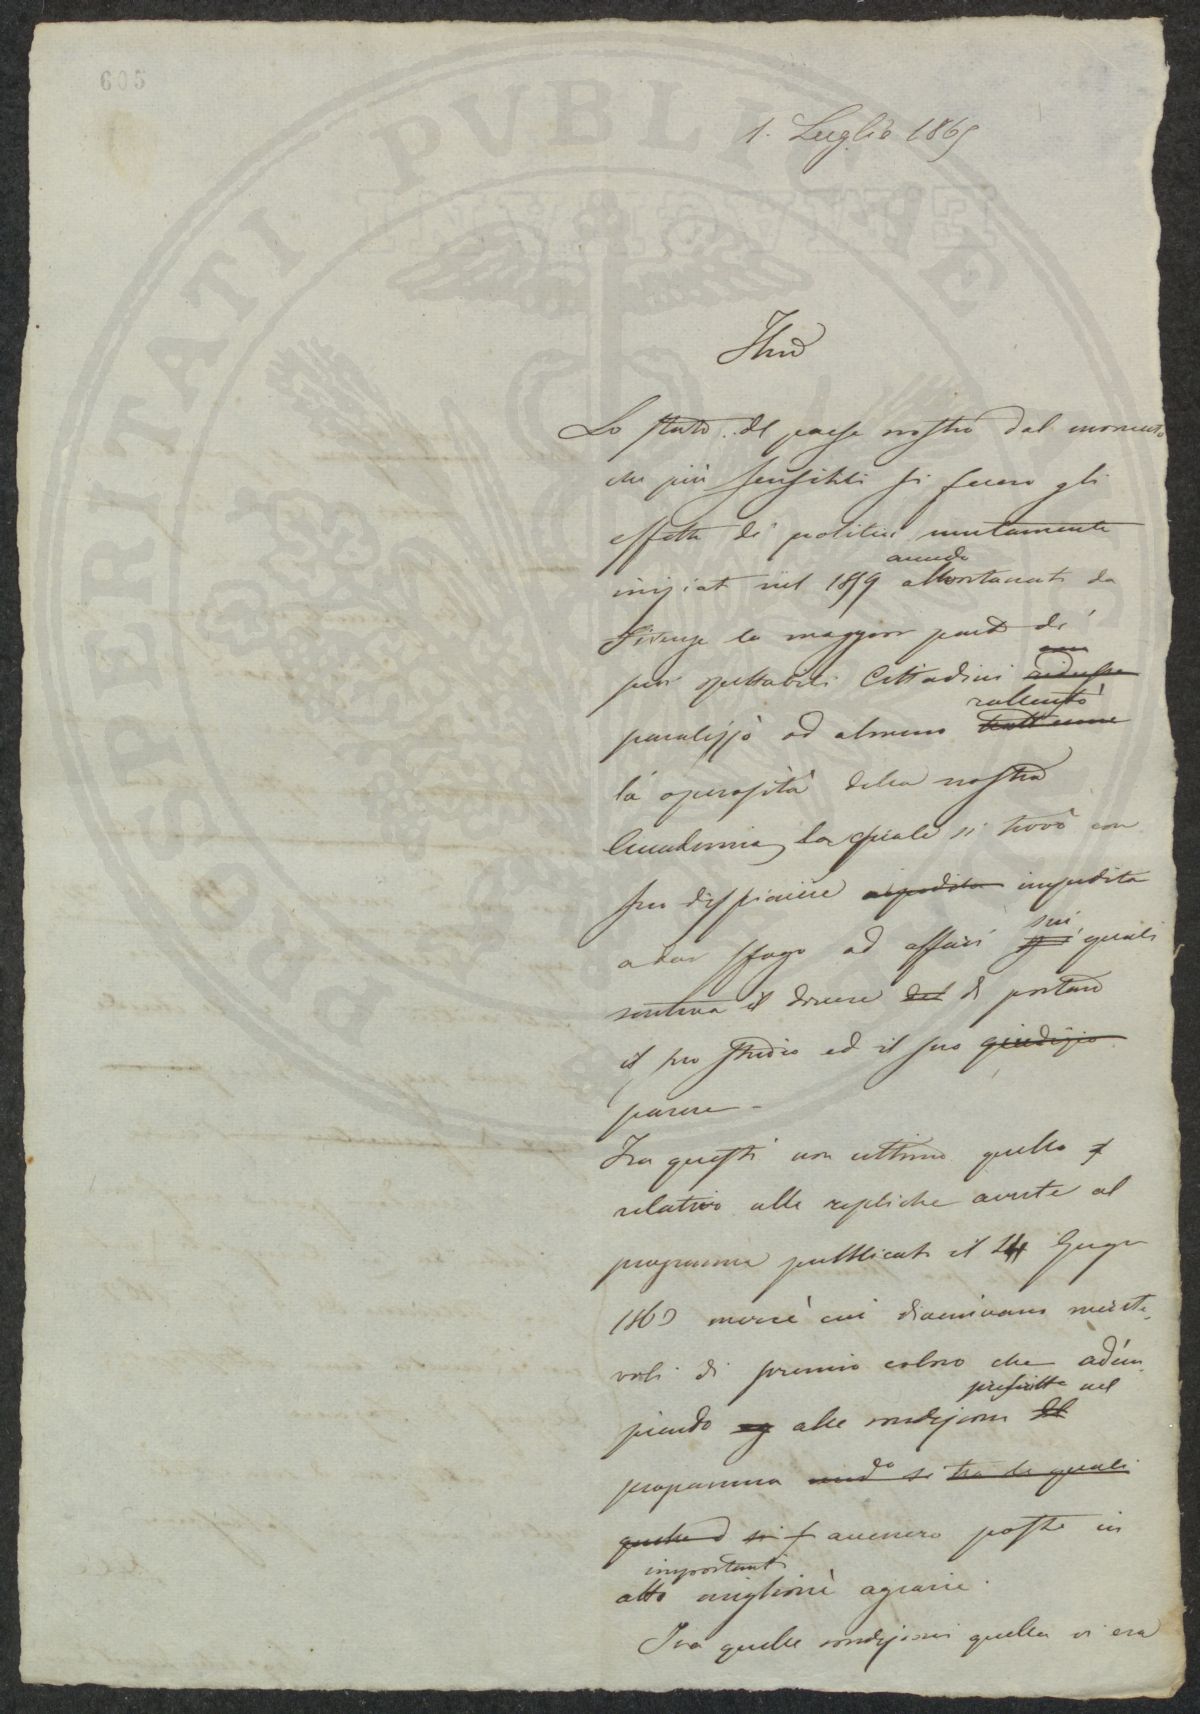 605
1. Luglio 1865
Illmo
Lo stato del paese nostro dal momento
che più sensibili si fecero gli
effetti de' politici mutamenti
iniziati nel 1859 avendo allontanati da
Firenze la maggior parte de'
più rispettabili Cittadini
paralizzò od almeno rallentò
la operosità della nostra
Accademia, la quale si trovò con
suo dispiacere impedita
a dar sfogo ad affari sui quali
sentiva il dovere di portare
il suo studio ed il suo giudizio
parere -
Fra questi non ultimo quello
relativo alle repliche avute al
programma pubblicato il Giugno
mercè cui divenivano merite-
voli di premio coloro che adem-
piendo alle condizioni prescritte nel
programma tra le quali
avessero poste in
atto importanti migliorie agrarie.
Fra quelle condizioni quella vi era
PROSPERITATI PVBLICAE AVGENDAE